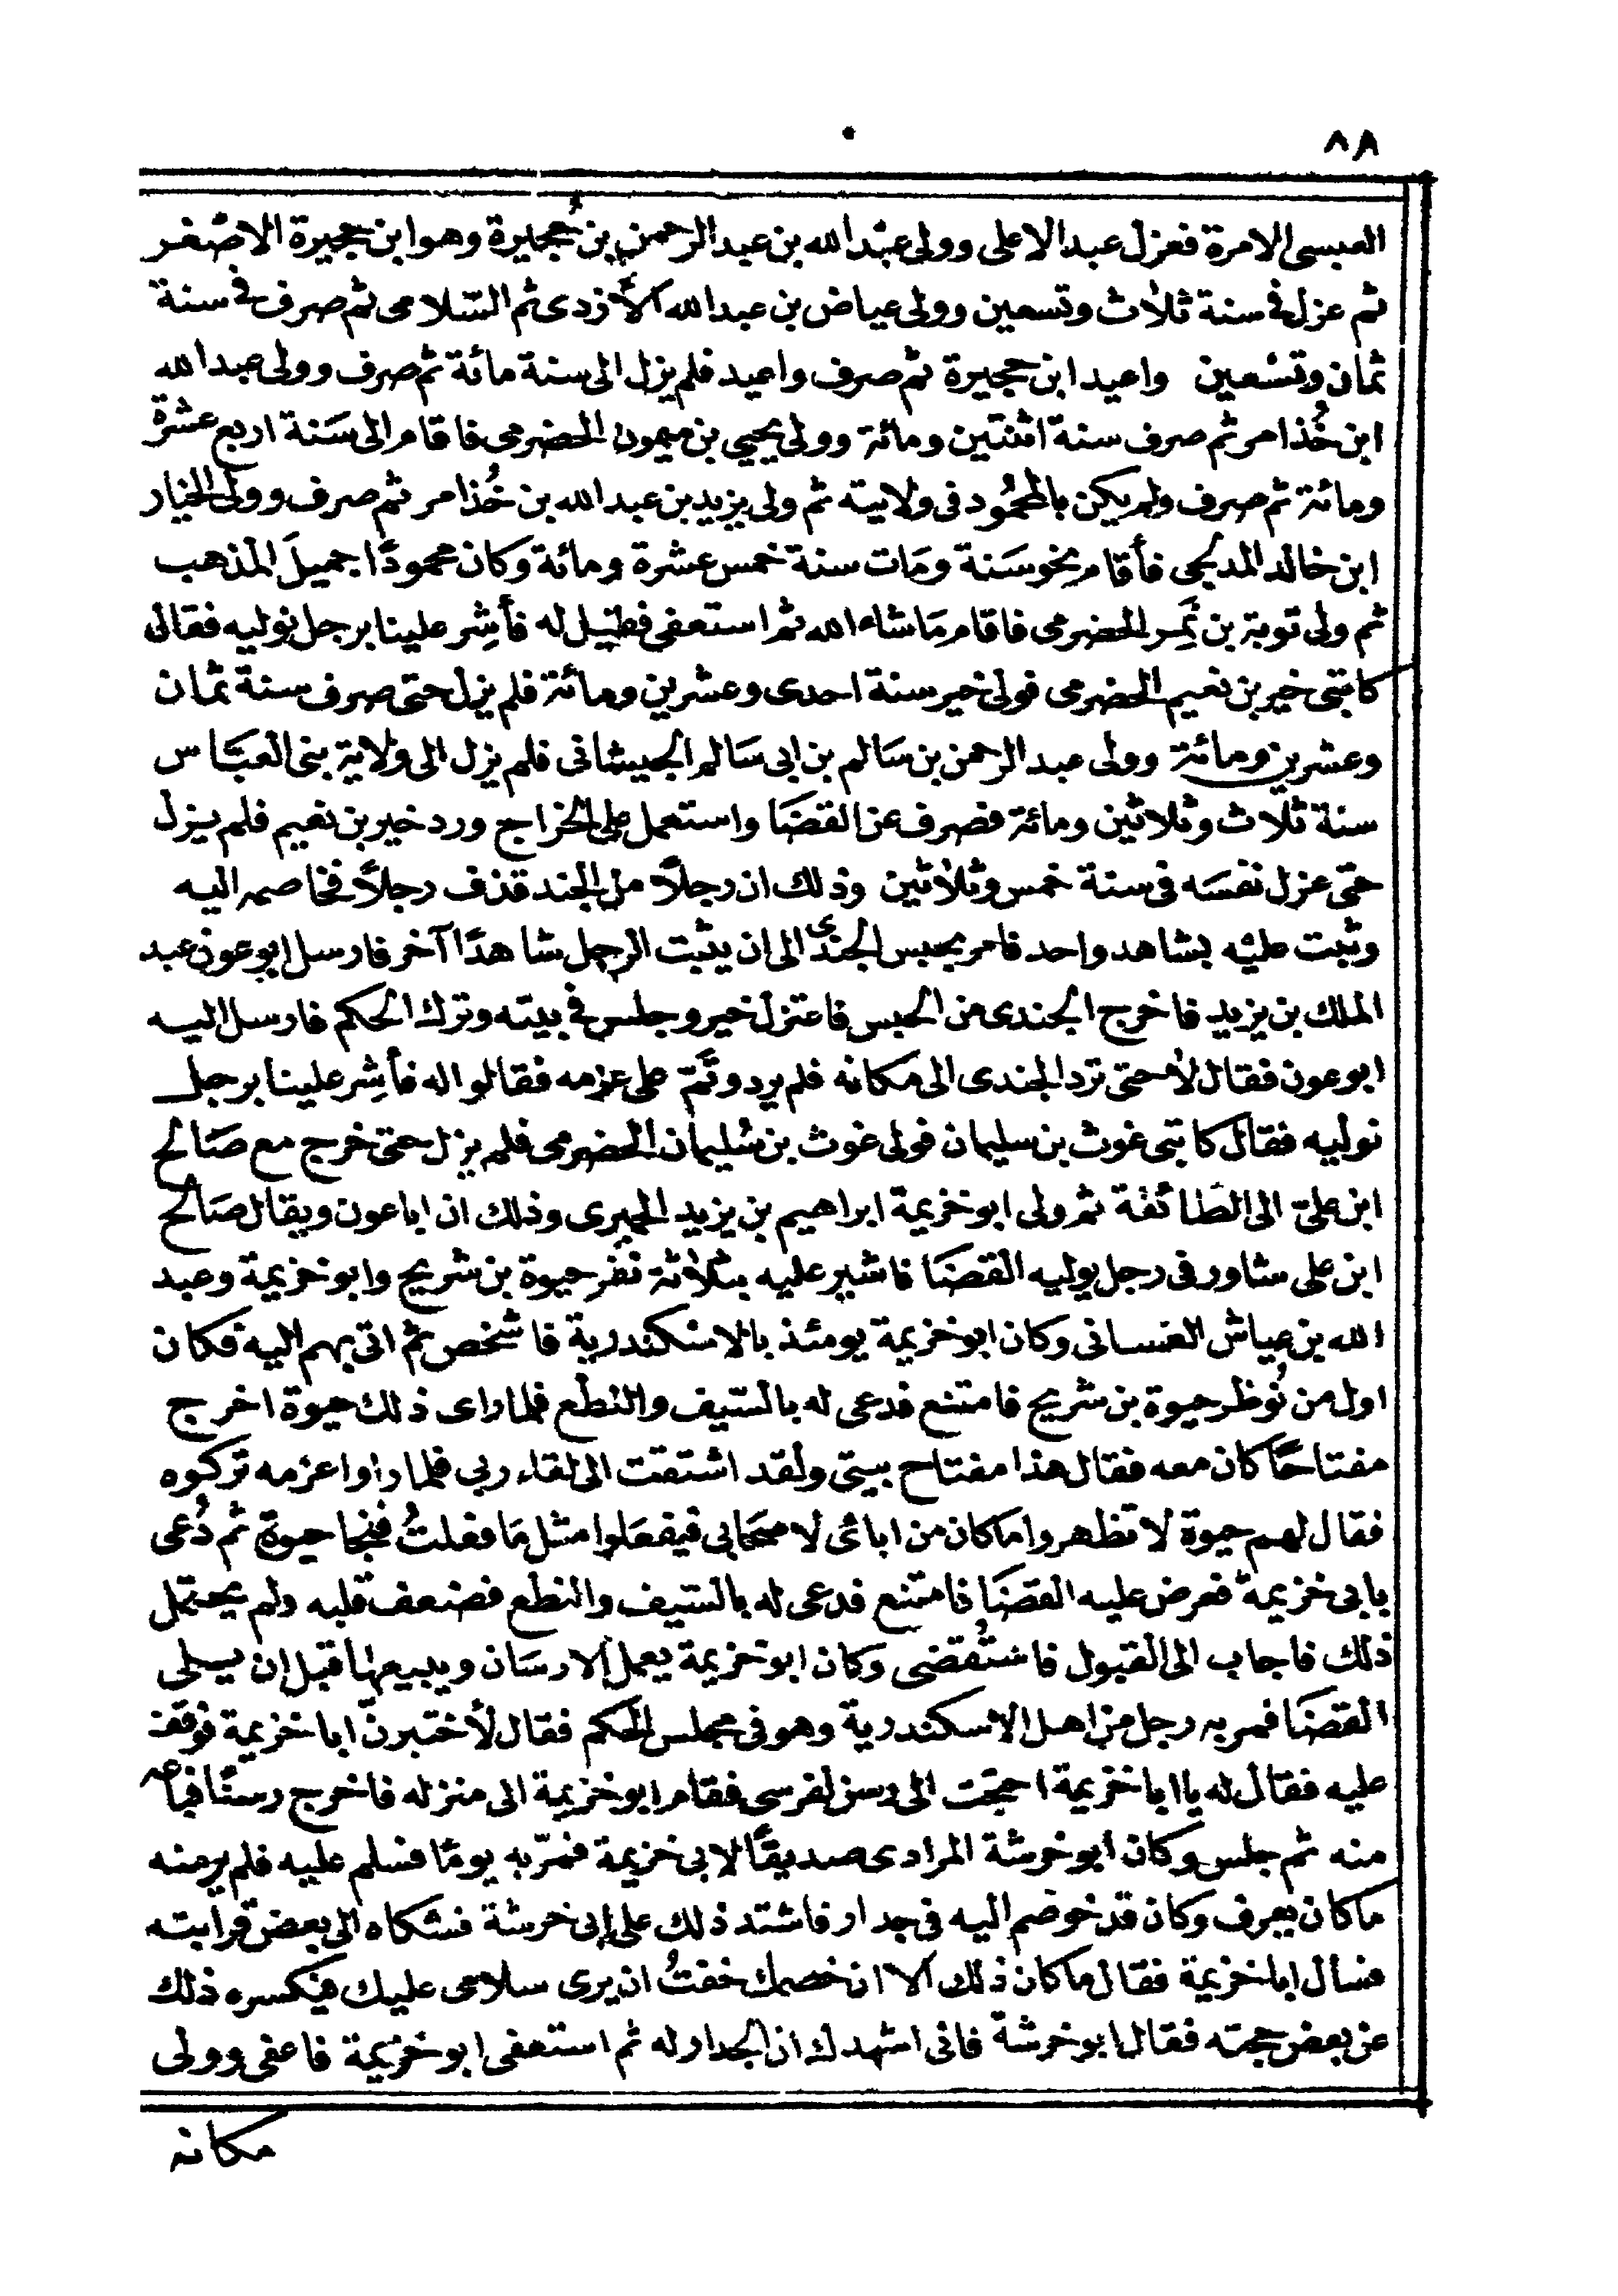 ٨٨
العبسى الامرة فعزل عبد الاعلى وولى عبد الله بن عبد الرحمن بن حُجيرة وهو ابن حجيرة الاصغر
ثم عزل فى سنة ثلاث وتسعين وولى عياض بن عبد الله الأزدى ثم السّلامى ثم صرف فى سنة
ثمان وتسعين واعيد ابن حجيرة ثم صرف واعيد فلم يزل الى سنة مائة ثم صرف وولى عبد الله
ابن خُذامر ثم صرف سنة اثنتين ومائة وولى يحيى بن ميمون الحضرمى فاقام الى سَنة اربع عشرة
ومائة ثم صرف ولم يكن بالمحمُود فى ولايته ثم ولى يزيد بن عبد الله بن خُذامر ثم صرف وولى الخيار
ابن خالد المدلجى فأقام نحو سَنة ومَات سنة خمس عشرة ومائة وكان محمودًا جميلَ المذهب
ثم ولى توبة بن نَمِر الحضرمى فاقام مَا شاء الله ثم استعفى فقيل له فأشِر علينا برجل نوليه فقال
كاتبى خير بن نعيم الحضرمى فولى خير سنة احدى وعشرين ومائة فلم يزل حتى صرف سنة ثمان
وعشرين ومائة وولى عبد الرحمن بن سَالم بن ابى سَالم الجيشانى فلم يزل الى ولاية بنى العبَّاس
سنة ثلاث وثلاثين ومائة فصرف عن القضَا واستعمل على الخراج ورد خير بن نعيم فلم يزل
حتى عزل نفسَه فى سنة خمس وثلاثين وذلك ان رجلاً من الجند قذف رجلاً فخاصمه اليه
وثبت عليْه بشاهد واحد فامر بحبس الجندى الى ان يثبت الرجل شاهدًا آخر فارسل ابو عون عبد
الملك بن يزيد فاخرج الجندى من الحبس فاعتزل خير وجلس فى بيته وترك الحكم فارسل اليه
ابو عون فقال لا حتى ترد الجندى الى مكانه فلم يرد وتَمّ على عزمه فقالوا له فأشِر علينا برجل
نوليه فقال كاتبى غوث بن سليمان فولى غوث بن سُليمان الحضرمى فلم يزل حتى خرج مع صَالح
ابن علىّ الى الطَائفة ثم ولى ابو خزيمة ابراهيم بن يزيد الحميرى وذلك ان ابا عون ويقال صَالح
ابن على شاور فى رجل يوليه القضَا فاشير عليه بثلاثة نفر حيوة بن شريح وابو خزيمة وعبد
الله بن عياش الغسانى وكان ابو خزيمة يومئذ بالاسكندرية فاشخص ثم اتى بهم اليه فكان
اول من نُوظر حيوة بن شريح فامتنع فدعى له بالسّيف والنطع فلما راى ذلك حيوة اخرج
مفتاحًا كان معه فقال هذا مفتاح بيتى ولقد اشتقت الى لقاء ربى فلما راوا عزمه تركوه
فقال لهم حيوة لا تظهروا ما كان من ابائى لاصحَابى فيفعَلوا مثل مَا فعلتُ فنجا حيوة ثم دُعى
بابى خزيمة فعرض عليه القضَا فامتنع فدعى له بالسّيف والنطع فضعف قلبه ولم يحتمل
ذلك فاجاب الى القبول فاستُقضى وكان ابو خزيمة يعمل الارسَان ويبيعها قبل ان يلى
القضَا فمر به رجل من اهل الاسكندرية وهو فى مجلس الحكم فقال لأختبرنّ ابا خزيمة فوقف
عليه فقال له يا ابا خزيمة احتجت الى رسن لفرسى فقام ابو خزيمة الى منزله فاخرج رسنًا فباعه
منه ثم جلس وكان أبو خرشة المرادى صديقًا لابى خزيمة فمرّ به يومًا فسلم عليه فلم ير منه
ما كان يعرف وكان قد خوصم اليه فى جدار فاشتد ذلك على ابى خرشة فشكاه الى بعض قرابته
فسأل ابا خزيمة فقال ما كان ذلك الا ان خصمك خفتُ ان يرى سلامى عليك فيكسره ذلك
عن بعض حجته فقال ابو خرشة فانى اشهدك ان الجدار له ثم استعفى ابو خزيمة فاعفى وولى
مكانه